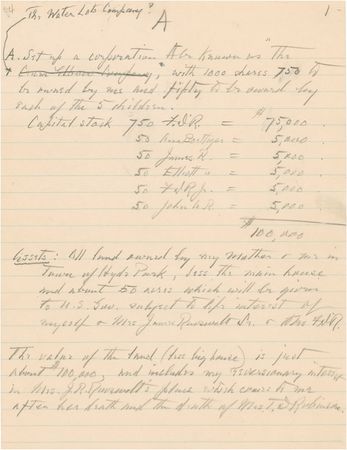 The Water Lots Company?
A
1-
A. Set up a corporation to be known as "the
Crum Elbow Company", with 1000 shares 750 to
be owned by me and fifty to be owned by
each of the 5 children.
$
Capital stock 750 F.D.R. = 75,000.
50 Anna Boettiger = 5,000
50 James R. = 5,000
50 Elliott R = 5,000
50 F.D.R. Jr. = 5,000.
50 John A.R. = 5,000.
$100,000
Assets: All land owned by my mother & me in
town of Hyde Park, less the main house
and about 50 acres which will be given
to U.S. Gov. subject to life interest of
myself & Mrs James Roosevelt Sr. & Mrs F.D.R.
The value of the land (less big house) is just
about $100,000, and includes my reversionary interest
in Mrs. J.R. Roosevelt's place which comes to me
after her death and the death of Mrs. T. D. Robinson.